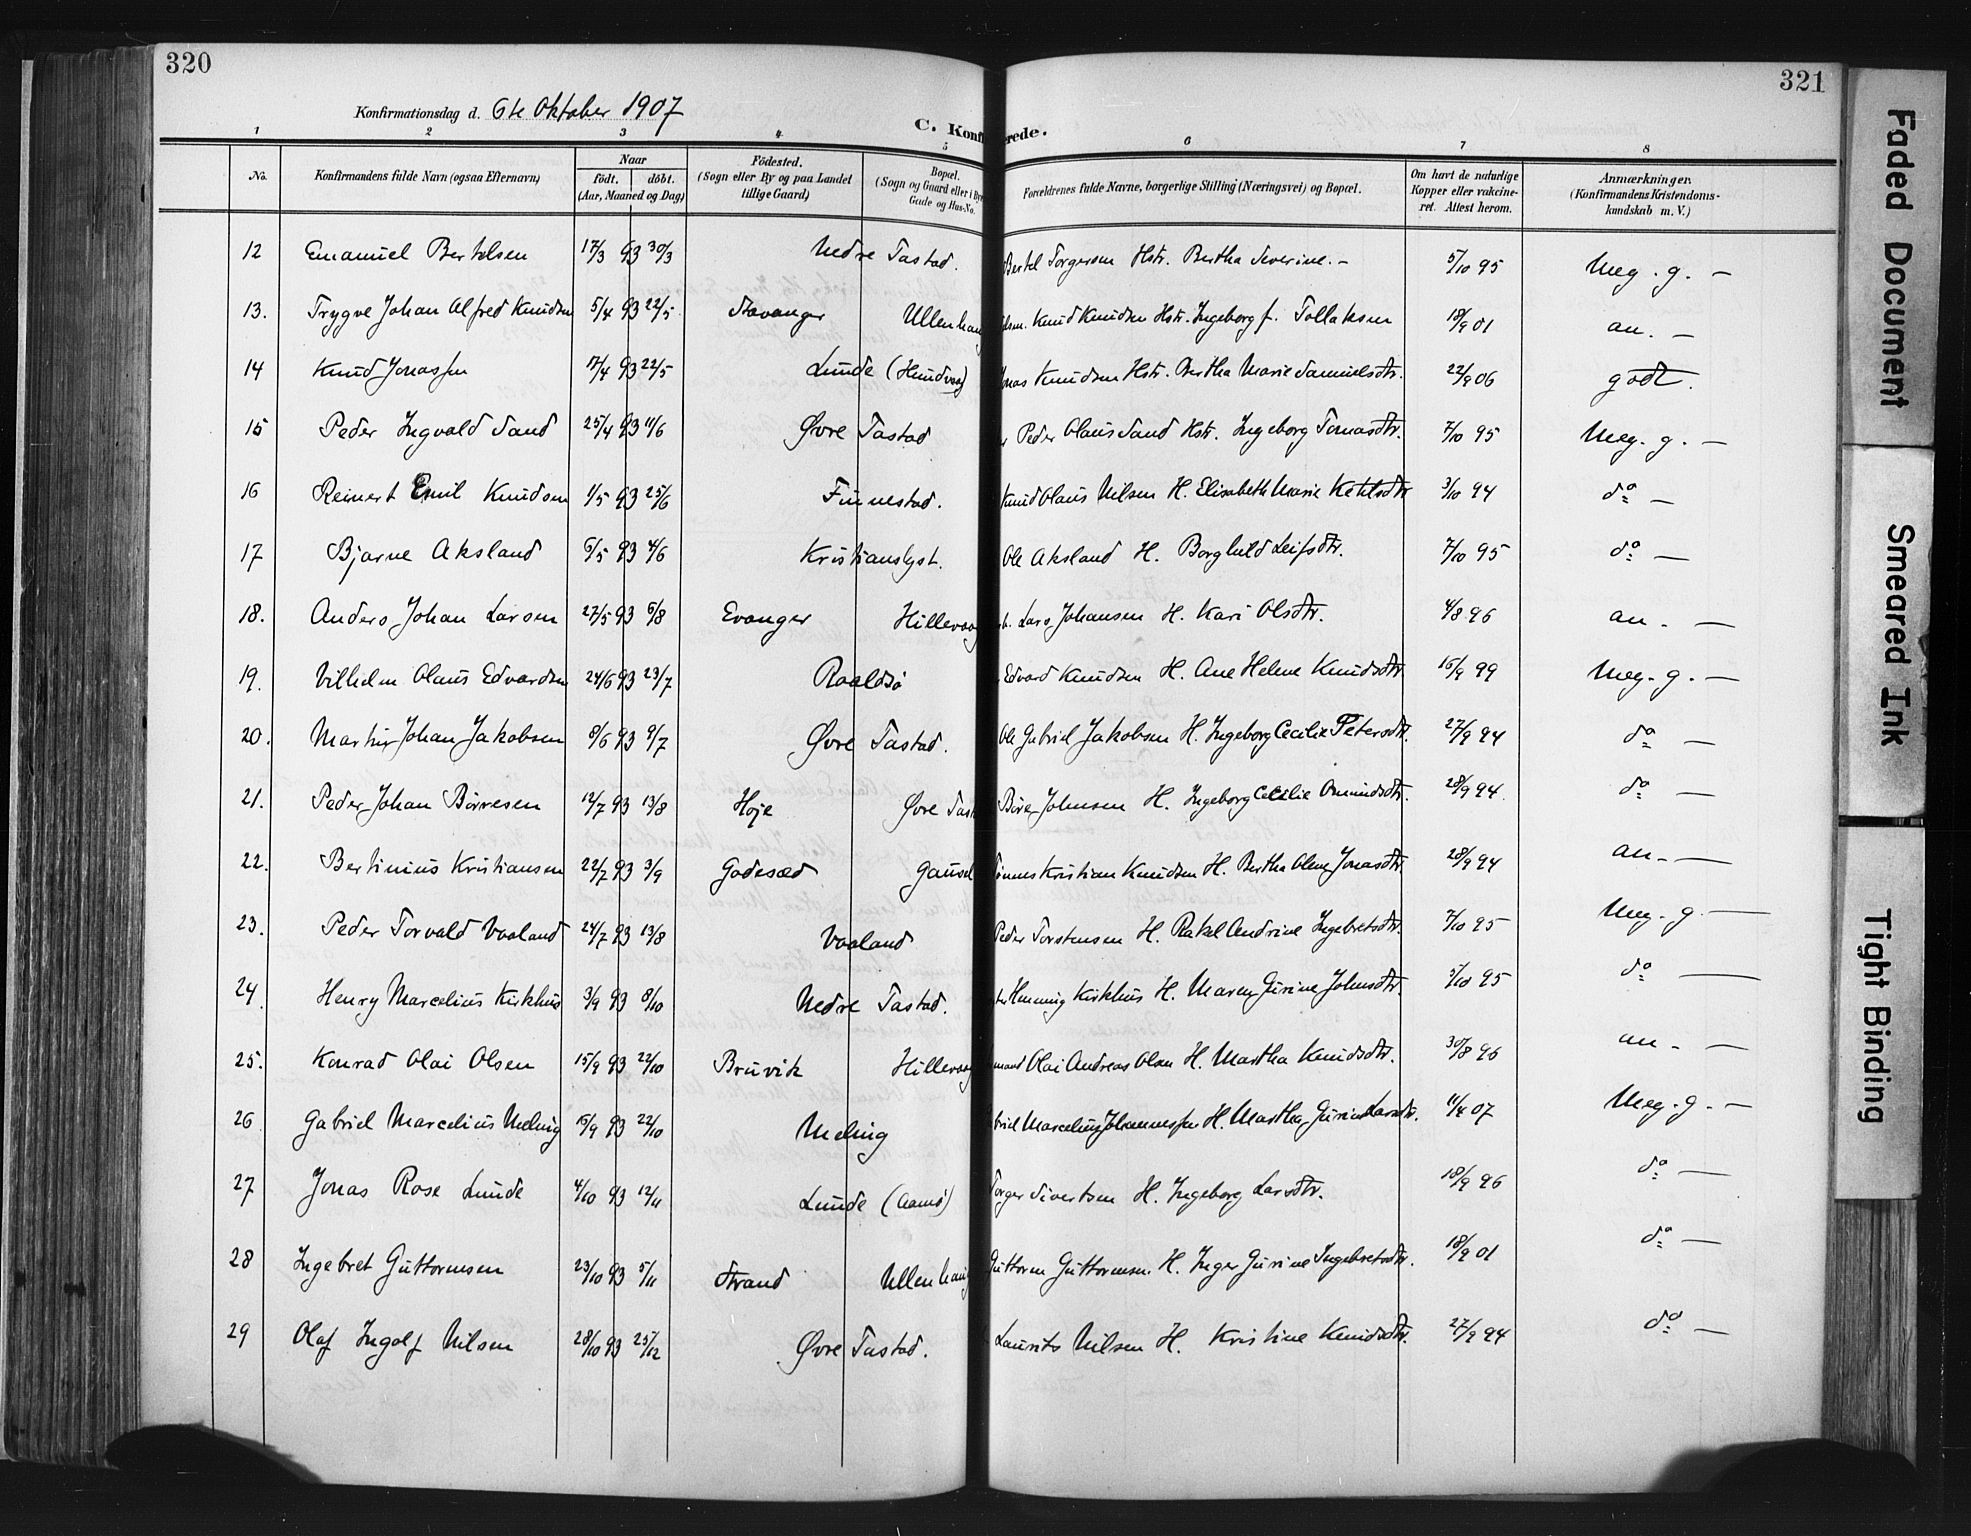 320
321
Konfirmationsdag d. 6te Oktober 1907
C. Konfi rerede.
1 2 3 4 5 6 7 8
No. Konfirmandens fulde Navn (ogsaa Efternavn) Naar født. døbt. (Aar, Maaned og Dag) Fødested. (Sogn eller By og paa Landet tillige Gaard) Bopæl. (Sogn og Gaard eller i By Gade og Hus-No. Forældrenes fulde Navne, borgerlige Stilling (Næringsvei) og Bopæl. Om havt de naturlige Kopper eller vakcineret. Attest herom. Anmærkninger. (Konfirmandens Kristendomskundskab m. V.)
12 Emanuel Bertelsen 17/3 93 30/3 Nedre Tastad. Bertel Torgersen Hstr. Bertha Severine. – 5/10 95 Meg. g. –
13. Trygve Johan Alfred Knudsen 5/4 93 22/5 Stavanger Ullenhaug Knud Knudsen Hstr. Ingeborg f. Tollaksen 18/9 01 an. –
14 Knud Jonassen 17/4 93 22/5 Lunde (Hundvaag) Jonas Knudsen Hstr. Bertha Marie Samuelsdtr. 22/9 06 godt.
15 Peder Ingvald Sand 25/4 93 11/6 Øvre Tastad Peder Olaus Sand Hstr. Ingeborg Tomasdtr. 7/10 95 Meg. g. –
16 Reinert Emil Knudsen 1/5 93 25/6 Finnestad. Knud Olaus Nilsen H. Elisabeth Marie Ketilsdtr 3/10 94 do –
17 Bjarne Aksland 6/5 93 4/6 Kristianslyst. Ole Aksland H. Borghild Leifsdtr. 7/10 95 do –
18. Anders Johan Larsen 27/5 93 6/8 Evanger Hillevaag Lars Johansen H. Kari Olsdtr. 4/8 96 an. –
19. Vilhelm Olaus Edvardsen 24/6 93 23/7 Roaldsø Edvard Knudsen H. Ane Helene Knudsdtr. 16/9 99 Meg. g. –
20. Martin Johan Jakobsen 8/6 93 9/7 Øvre Tastad. Ole Gabriel Jakobsen H. Ingeborg Cecilie Petersdtr. 27/9 94 do –
21. Peder Johan Börresen 12/7 93 13/8 Høje Øvre Tast Böre Johnsen H. Ingeborg Cecilie Omundsdtr. 28/9 94. do –
22. Bertinius Kristiansen 22/7 93 3/9 Godesæd Gausel Tönnes Kristian Knudsen H. Bertha Olene Jonasdtr. 28/9 94 an. –
23. Peder Torvald Vaaland 24/7 93 13/8 Vaaland Peder Torstensen H. Rakel Andrine Ingebretsdtr. 7/10 95 Meg. g. –
24. Henry Marcelius Kirkhus 3/9 93 8/10 Nedre Tastad. Henning Kirkhus H. Maren Gurine Johnsdtr. 5/10 95 do –
25. Konrad Olai Olsen 15/9 93 22/10 Bruvik Hillevaag Olai Andreas Olsen H. Martha Knudsdtr. 30/8 96 an. –
26 Gabriel Marcelius Meling 15/9 93 22/10 Meling briel Marcelius Johannessen H. Martha Gurine Larsdtr. 11/4 07 Meg. g. –
27 Jonas Rose Lunde 4/10 93 12/11 Lunde (Aamö) Torger Sivertsen H. Ingeborg Larsdtr. 18/9 96 do –
28 Ingebret Guttormsen 23/10 93 5/11 Strand Ullenhaug Guttorm Guttormsen H. Inger Gurine Ingebretsdtr. 18/9 01 do –
29 Olaf Ingolf Nilsen 28/10 93 25/12 Øvre Tastad. Laurits Nilsen H. Kristine Knudsdtr. 27/9 94 do –
Faded Document
Smeared Ink
Tight Binding